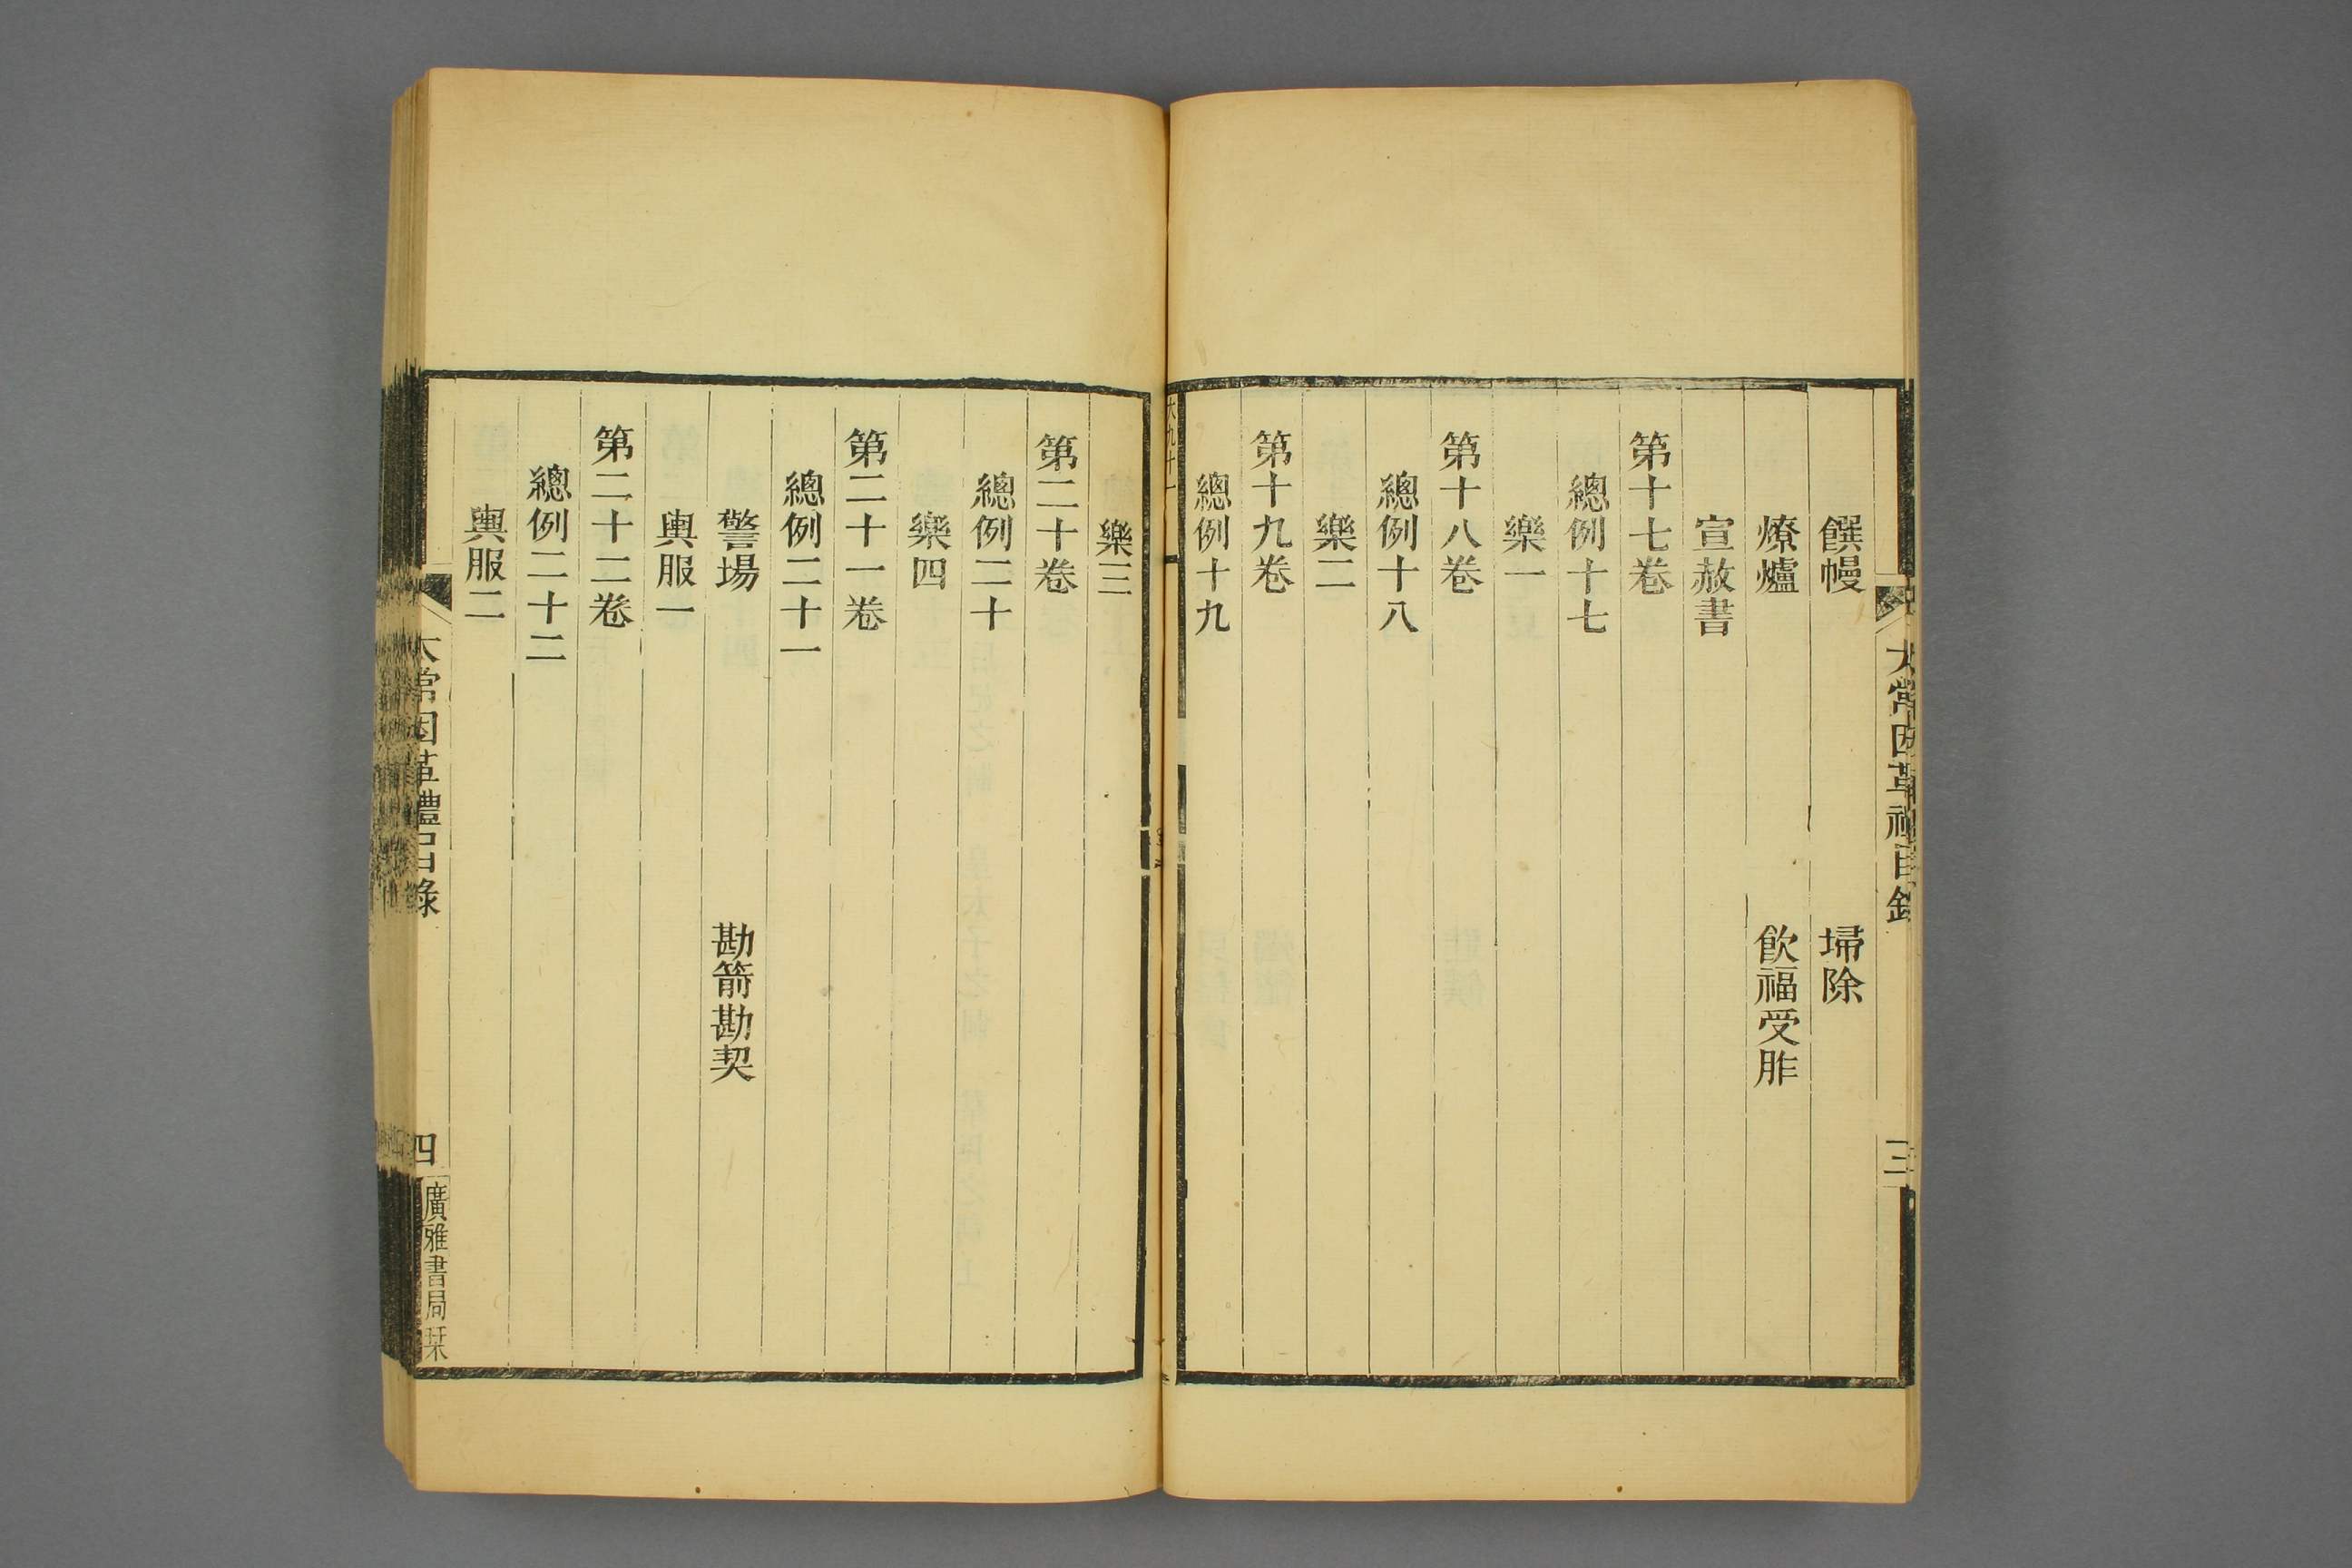 太常因革禮目錄
三
饌幔　掃除
燎爐　飲福受胙
宣赦書
第十七卷
總例十七
樂一
第十八卷
總例十八
樂二
第十九卷
總例十九
樂三
第二十卷
總例二十
樂四
第二十一卷
總例二十一
警場　勘箭勘契
輿服一
第二十二卷
總例二十二
輿服二
太常因革禮目錄
四
廣雅書局栞